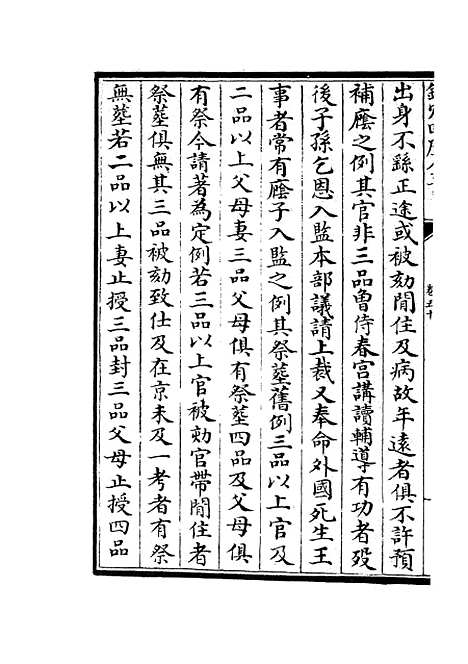 出身不繇正途或被劾閒住及病故年遠者俱不許預
補廕之例其官非三品曾侍春宮講讀輔導有功者殁
後子孫乞恩入監本部議請上裁又奉命外國死生王
事者常有廕子入監之例其祭塟舊例三品以上官及
二品以上父母妻三品父母俱有祭塟四品及父母俱
有祭今請著為定例若三品以上官被劾官帶閒住者
祭塟俱無其三品被劾致仕及在京未及一考者有祭
無塟若二品以上妻止授三品封三品父母止授四品